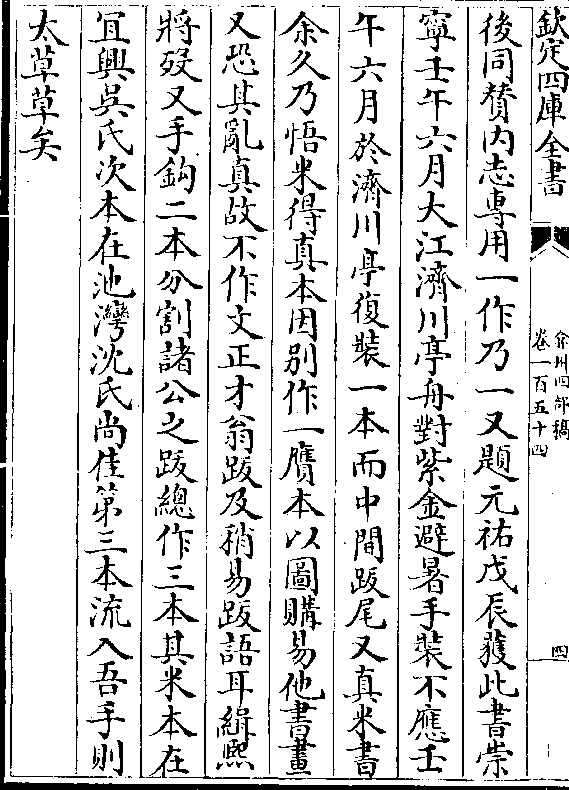 欽定四庫全書
弇州四部稿
卷一百五十四
四
後同賛内志專用一作乃一又題元祐戊辰獲此書崇
寧壬午六月大江濟川亭舟對紫金避暑手裝不應壬
午六月於濟川亭復裝一本而中間跋尾又真米書
余久乃悟米得真本因别作一贋本以圖購易他書畫
又恐其亂真故不作文正才翁跋及稍易跋語耳緝熙
將歿又手鈎二本分割諸公之跋總作三本其米本在
宜興吳氏次本在池灣沈氏尚佳第三本流入吾手則
太草草矣